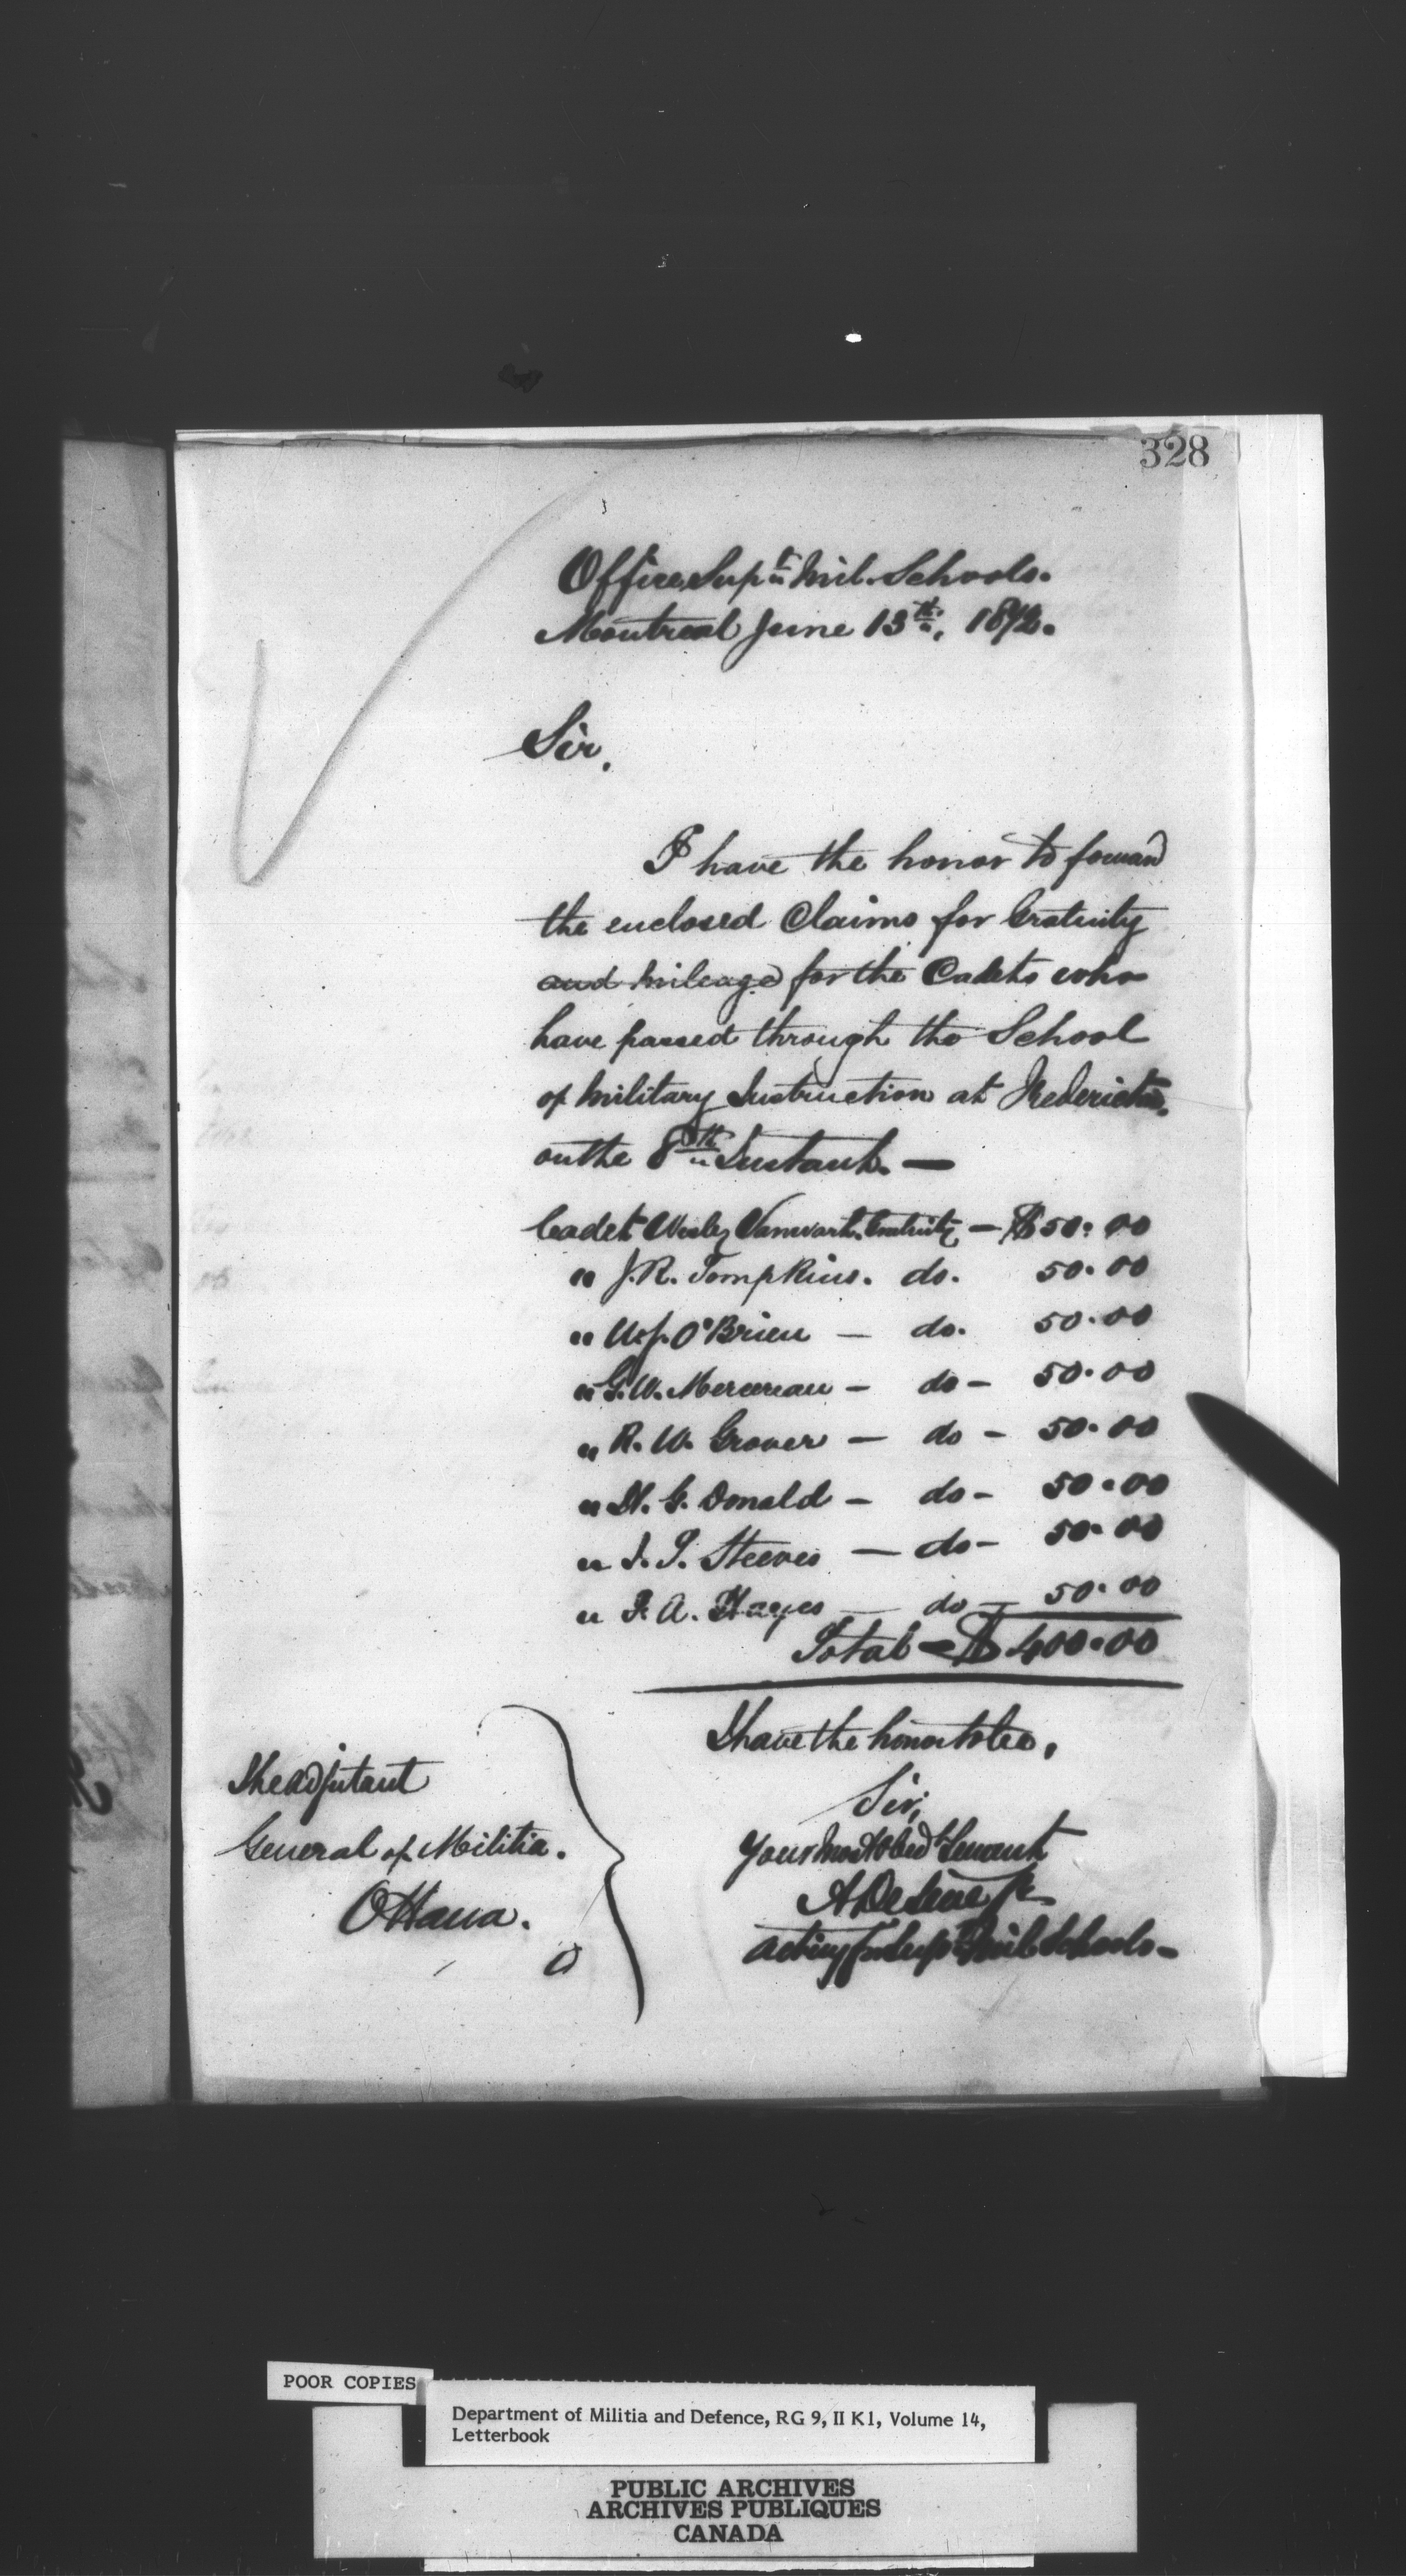 328
Office Supt. Mil. Schools.
Montreal June 13th, 1872.
Sir,
I have the honor to forward
the enclosed Claims for Gratuity
and mileage for the Cadets who
have passed through the School
of Military Instruction at Fredericton.
on the 8th Instant. —
Cadet Wesley Vanwart. Gratuity — $50.00
" J.R. Tompkins. do. 50.00
" W.J. O'Brien — do. 50.00
" G.W. Mercereau — do — 50.00
" R.W. Grover — do — 50.00
" H.G. Donald — do — 50.00
" I.I. Steeves — do — 50.00
" F.A. Hayes — do — 50.00
Total — $400.00
I have the honor to be,
Sir,
Your most Obed Servant
Acting for Supt Mil Schools —
The Adjutant
General of Militia.
Ottawa.
POOR COPIES
Department of Militia and Defence, RG 9, II K1, Volume 14,
Letterbook
PUBLIC ARCHIVES
ARCHIVES PUBLIQUES
CANADA